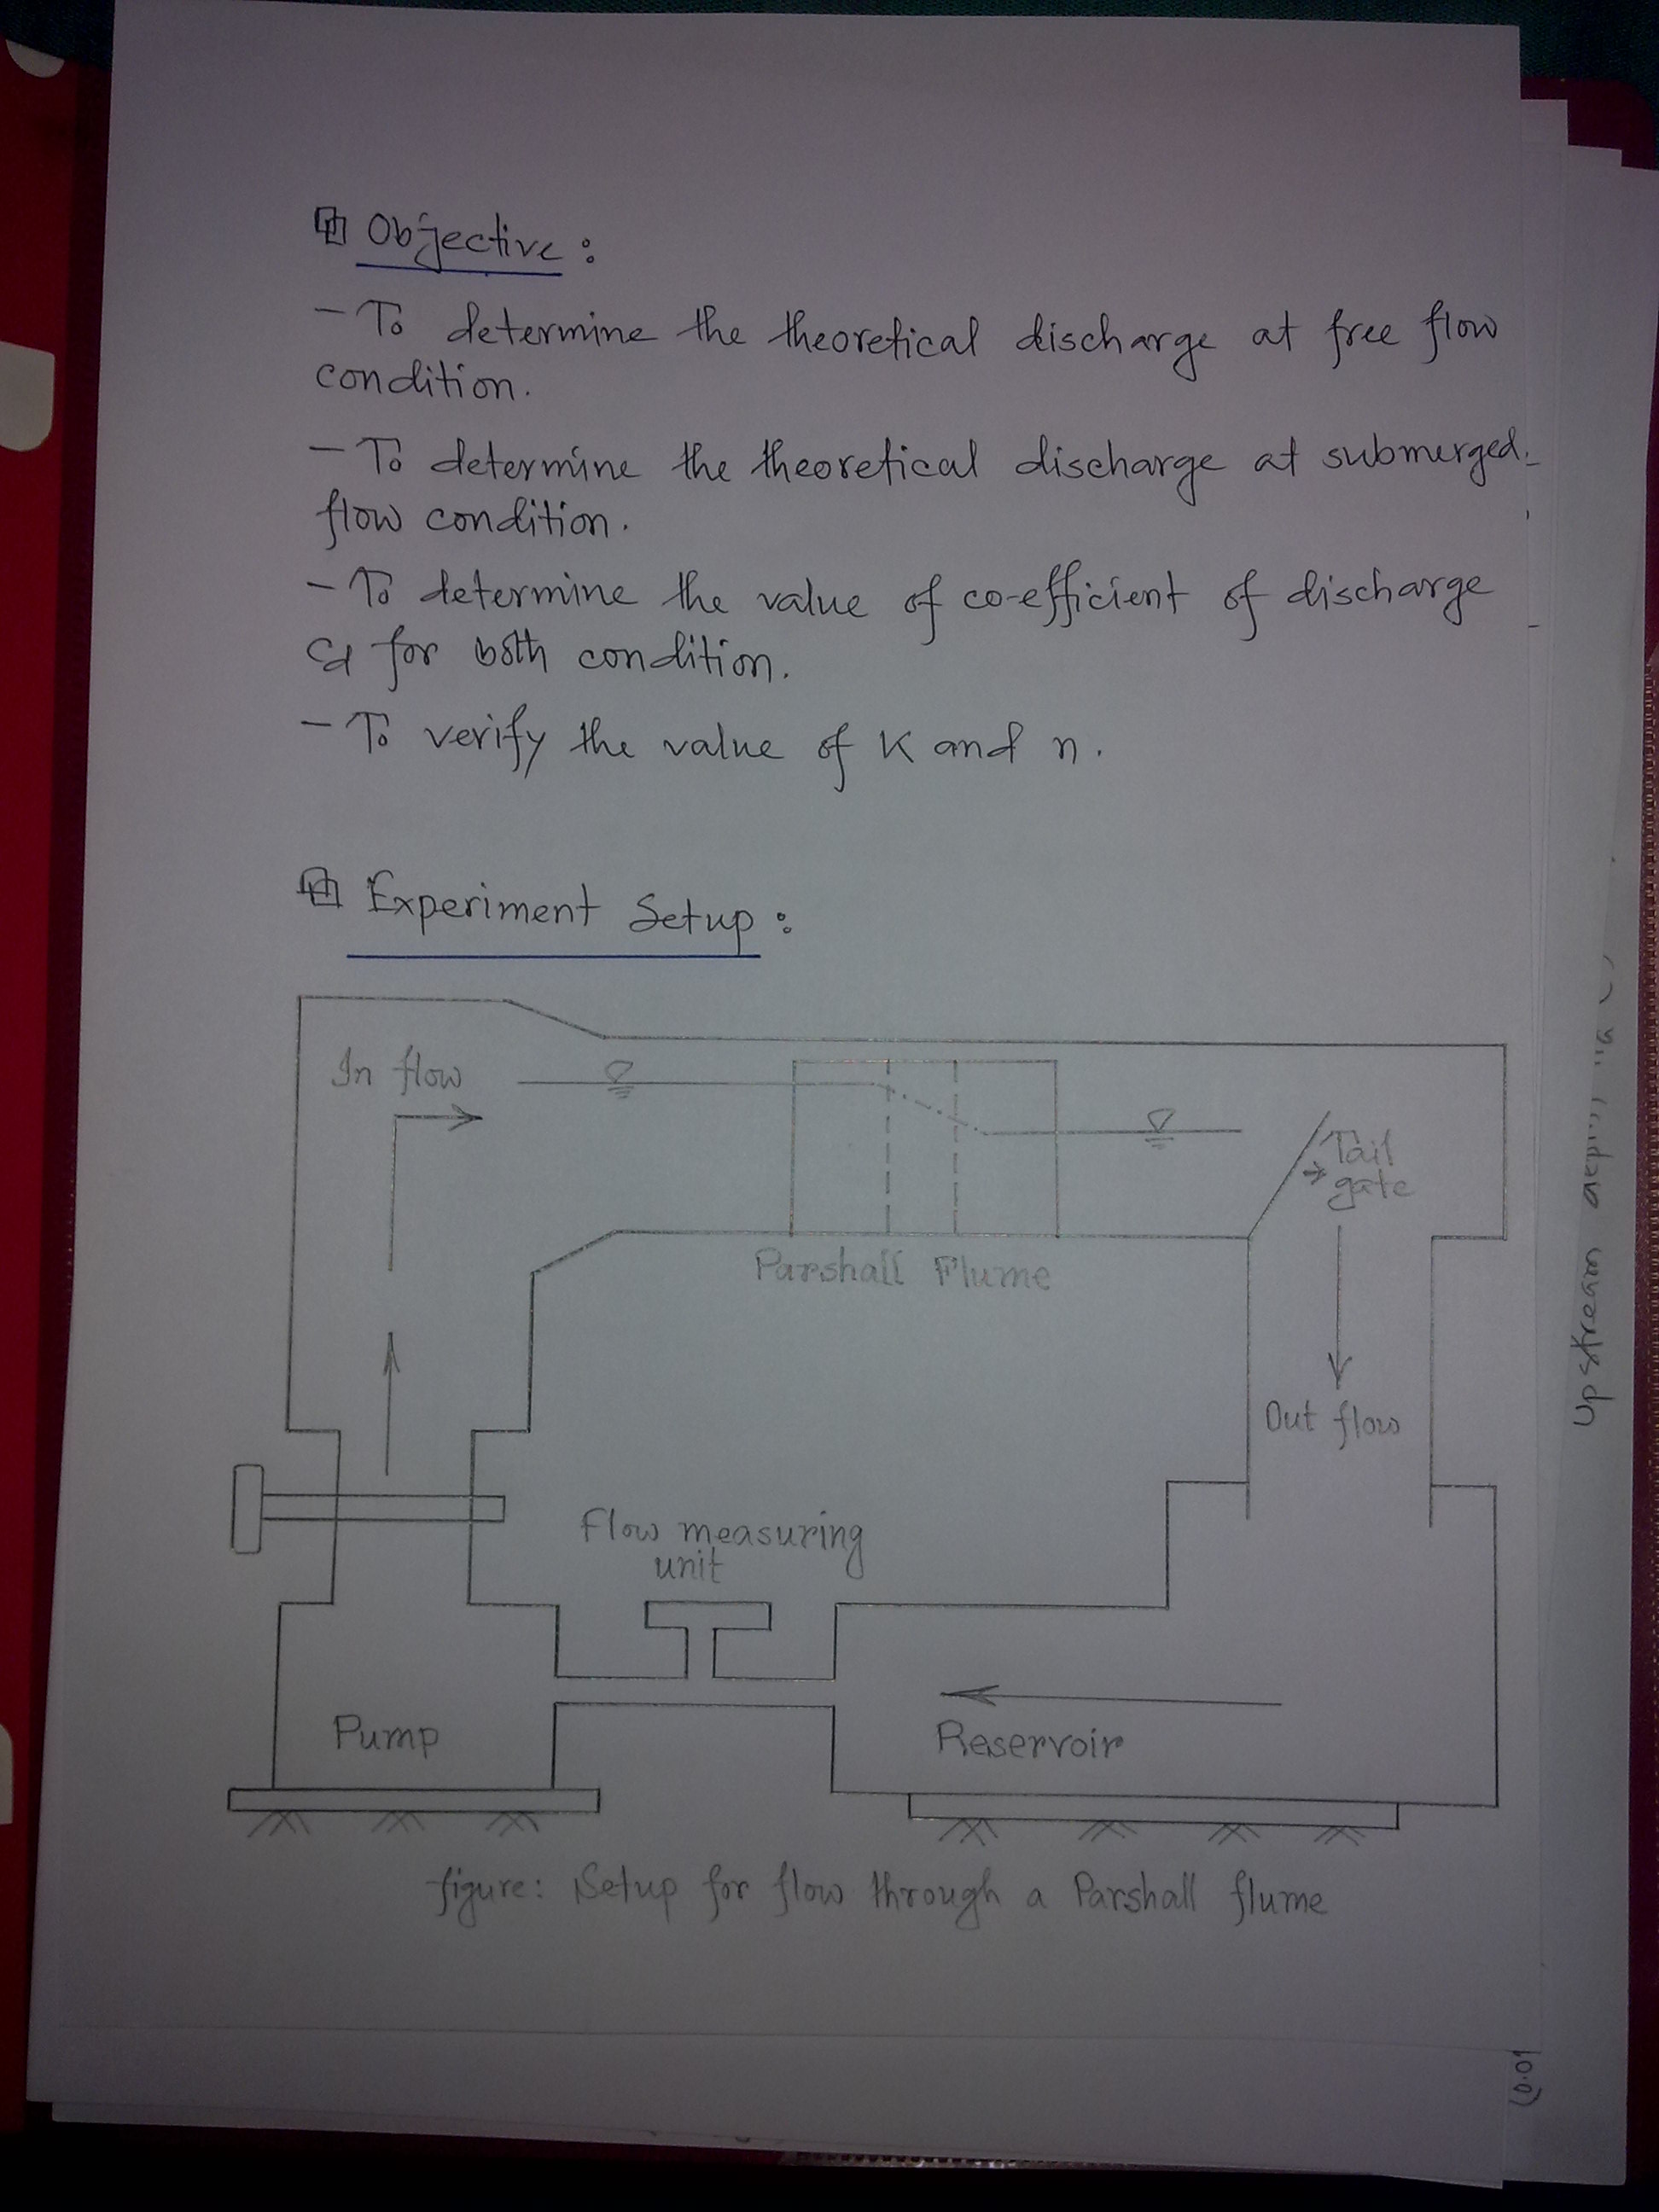 Objective:
- To determine the theoretical discharge at free flow
condition.
- To determine the theoretical discharge at submerged
flow condition.
- To determine the value of co-efficient of discharge
Cd for both condition.
- To verify the value of K and n.
Experiment Setup:
In flow
Tail
gate
Parshall Flume
Out flow
Flow measuring
unit
Pump
Reservoir
figure: Setup for flow through a Parshall flume
Upstream